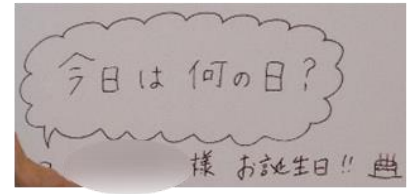 今日は 何の日?
様 お誕生日!!